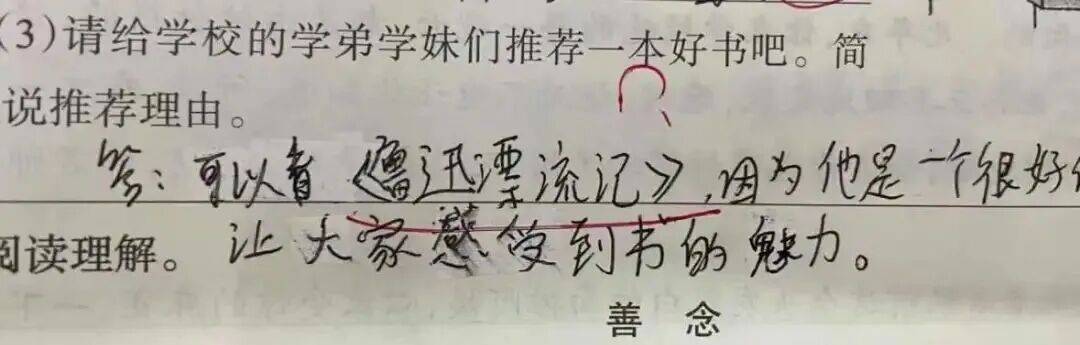 (3)请给学校的学弟学妹们推荐一本好书吧。简
说推荐理由。
答:可以看《鲁迅漂流记》,因为他是一个很好
让大家感受到书的魅力。
阅读理解。
善 念